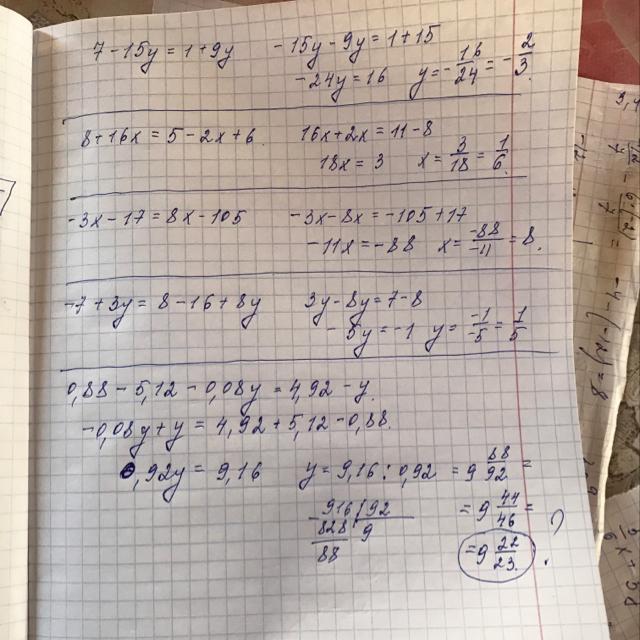 7 - 15y = 1 + 9y    -15y - 9y = 1 + 15
-24y = 16    y = -16/24 = -2/3.
8 + 16x = 5 - 2x + 6.    16x + 2x = 11 - 8
18x = 3    x = 3/18 = 1/6.
-3x - 17 = 8x - 105    -3x - 8x = -105 + 17
-11x = -88    x = -88/-11 = 8.
-7 + 3y = 8 - 16 + 8y    3y - 8y = 7 - 8
-5y = -1    y = -1/-5 = 1/5
0,88 - 5,12 - 0,08y = 4,92 - y.
-0,08y + y = 4,92 + 5,12 - 0,88.
0,92y = 9,16    y = 9,16 : 0,92 = 9 88/92 =
916 | 92    = 9 44/46 =
828 | 9    ?
88    = 9 22/23.